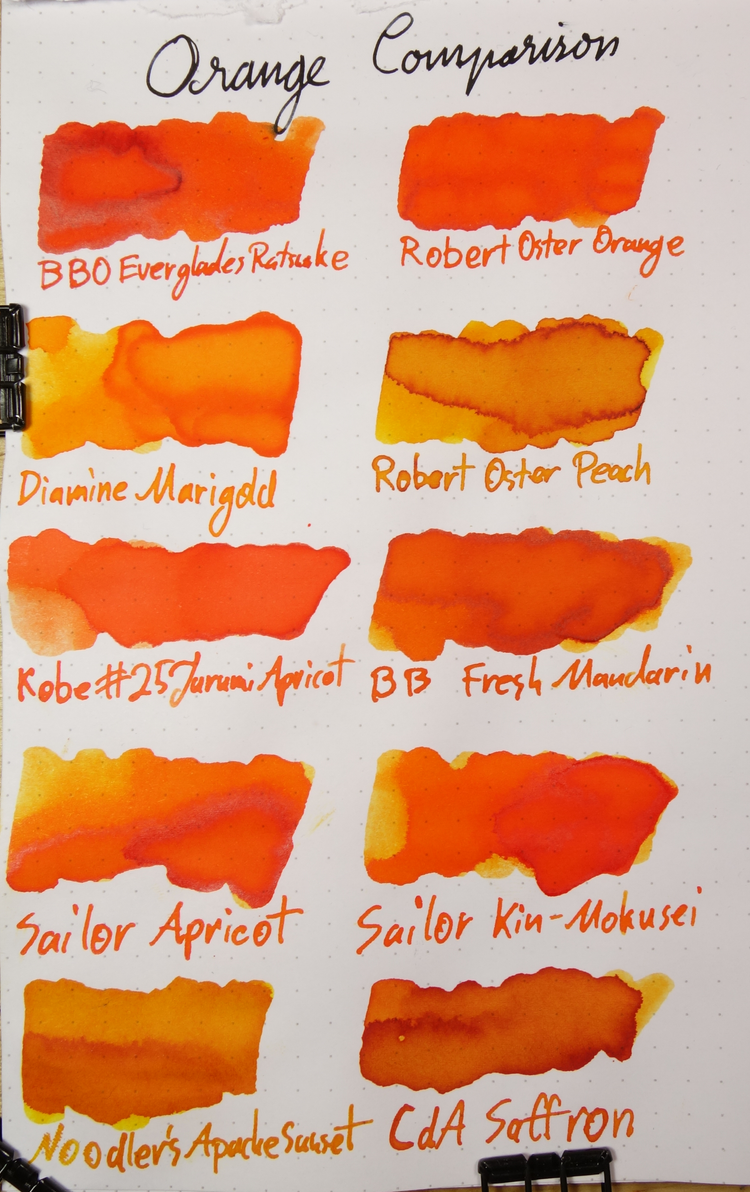 Orange Comparison
BBO Everglades Ratsuke
Robert Oster Orange
Diamine Marigold
Robert Oster Peach
Kobe #25 Tarumi Apricot
BB Fresh Mandarin
Sailor Apricot
Sailor Kin-Mokusei
Noodler's Apache Sunset
CdA Saffron